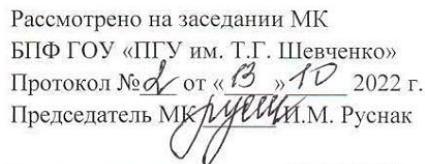 Рассмотрено на заседании МК
БПФ ГОУ «ПГУ им. Т.Г. Шевченко»
Протокол № 2 от « 13 » 10 2022 г.
Председатель МК И.М. Руснак